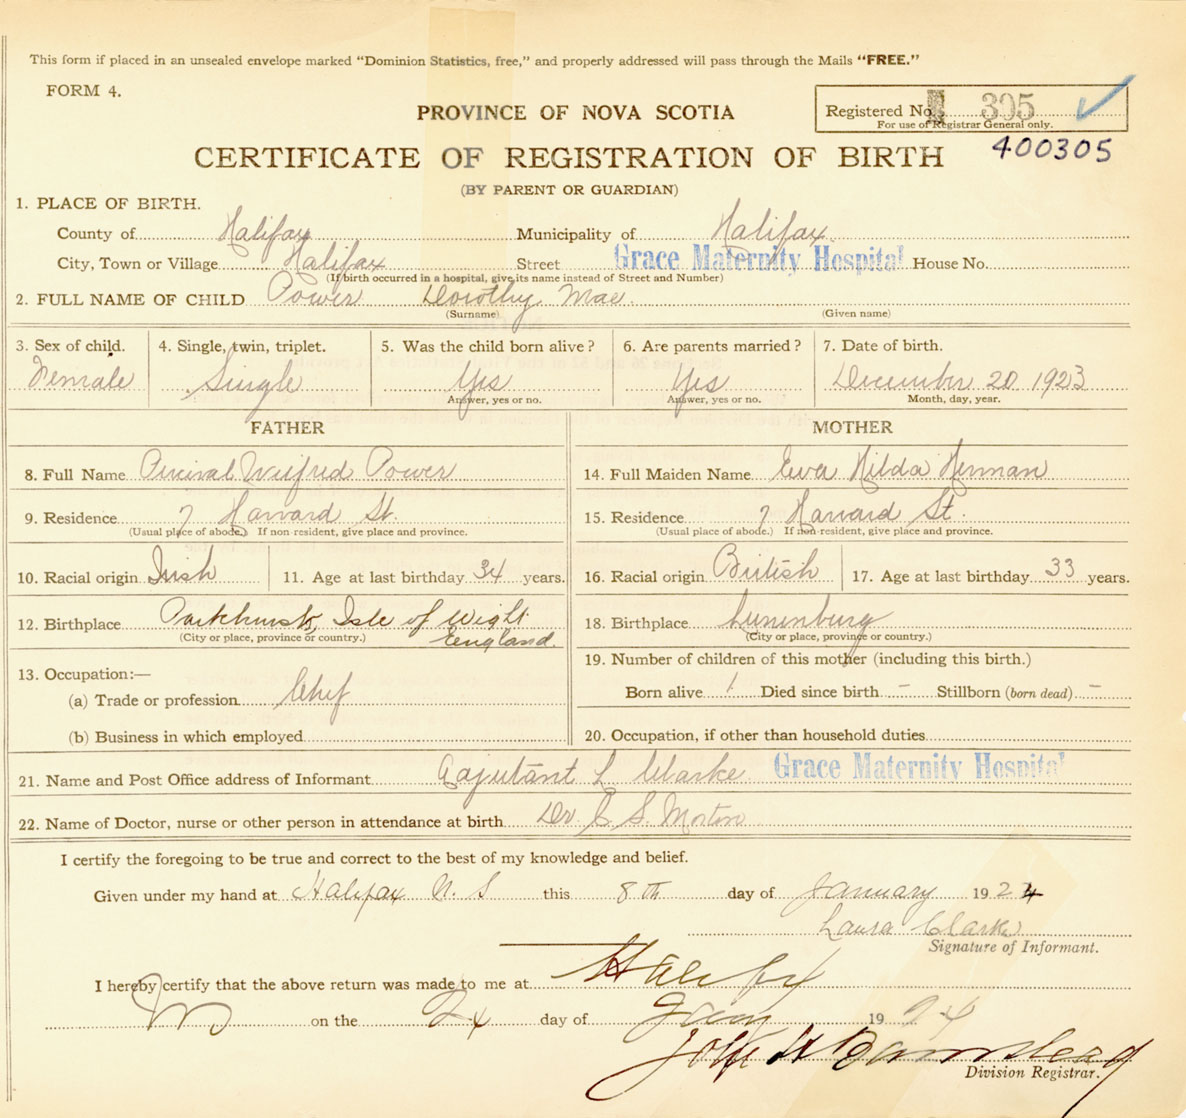 This form if placed in an unsealed envelope marked “Dominion Statistics, free,” and properly addressed will pass through the Mails “FREE.”
FORM 4.
PROVINCE OF NOVA SCOTIA
Registered No. 305
For use of Registrar General only.
CERTIFICATE OF REGISTRATION OF BIRTH 400305
(BY PARENT OR GUARDIAN)
1. PLACE OF BIRTH.
County of Halifax Municipality of Halifax
City, Town or Village Halifax Street Grace Maternity Hospital House No.
(If birth occurred in a hospital, give its name instead of Street and Number)
2. FULL NAME OF CHILD Power Dorothy Mae.
(Surname) (Given name)
3. Sex of child. 4. Single, twin, triplet. 5. Was the child born alive? 6. Are parents married? 7. Date of birth.
Female Single Yes Yes December 20 1923
Answer, yes or no. Answer, yes or no. Month, day, year.
FATHER MOTHER
8. Full Name Percival Wilfred Power 14. Full Maiden Name Eva Hilda Herman
9. Residence 7 Harvard St. 15. Residence 7 Harvard St.
(Usual place of abode.) If non-resident, give place and province. (Usual place of abode.) If non-resident, give place and province.
10. Racial origin Irish 11. Age at last birthday 34 years. 16. Racial origin British 17. Age at last birthday 33 years.
12. Birthplace Parkhurst, Isle of Wight England. 18. Birthplace Lunenburg
(City or place, province or country.) (City or place, province or country.)
13. Occupation:— 19. Number of children of this mother (including this birth.)
(a) Trade or profession Chef Born alive 1 Died since birth – Stillborn (born dead) –
(b) Business in which employed 20. Occupation, if other than household duties
21. Name and Post Office address of Informant Adjutant L Clarke Grace Maternity Hospital
22. Name of Doctor, nurse or other person in attendance at birth Dr. C S. Morton
I certify the foregoing to be true and correct to the best of my knowledge and belief.
Given under my hand at Halifax N. S this 8th day of January 1924
Laura Clarke
Signature of Informant.
I hereby certify that the above return was made to me at Halifax
on the 24 day of Jany 1924
Division Registrar.